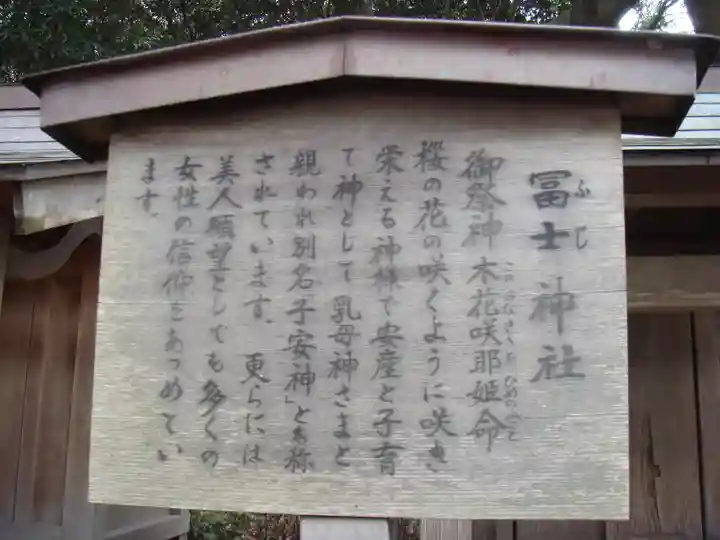 冨士神社
ふじ
御祭神 木花咲耶姫命
このはなさくやひめのみこと
桜の花の咲くように咲き
栄える神様で安産と子育
て神として乳母神さまと
親われ別名「子安神」とも称
されています。更らには
美人願望としても多くの
女性の信仰をあつめてい
ます。